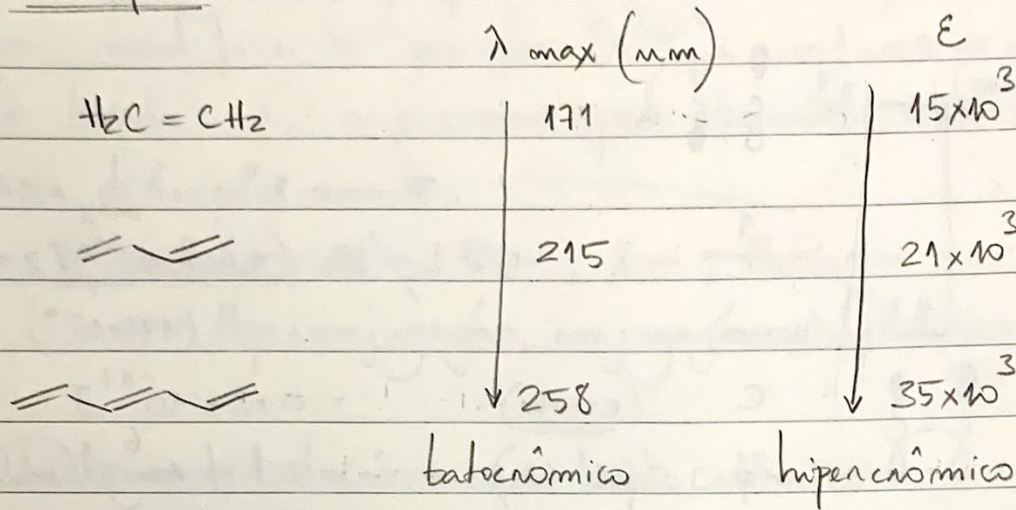 λ max (nm) ε
H₂C = CH₂ 171 15×10³
215 21×10³
258 35×10³
batocrômico hipercrômico